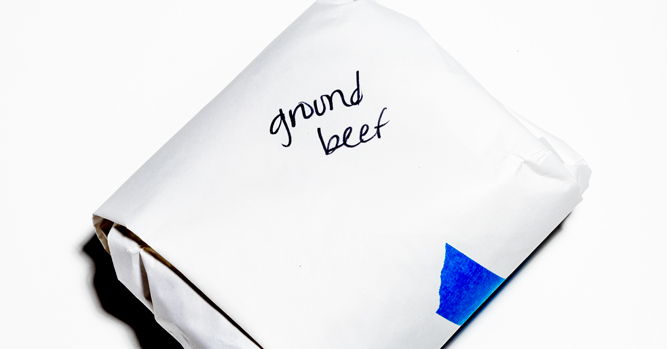 ground
beef